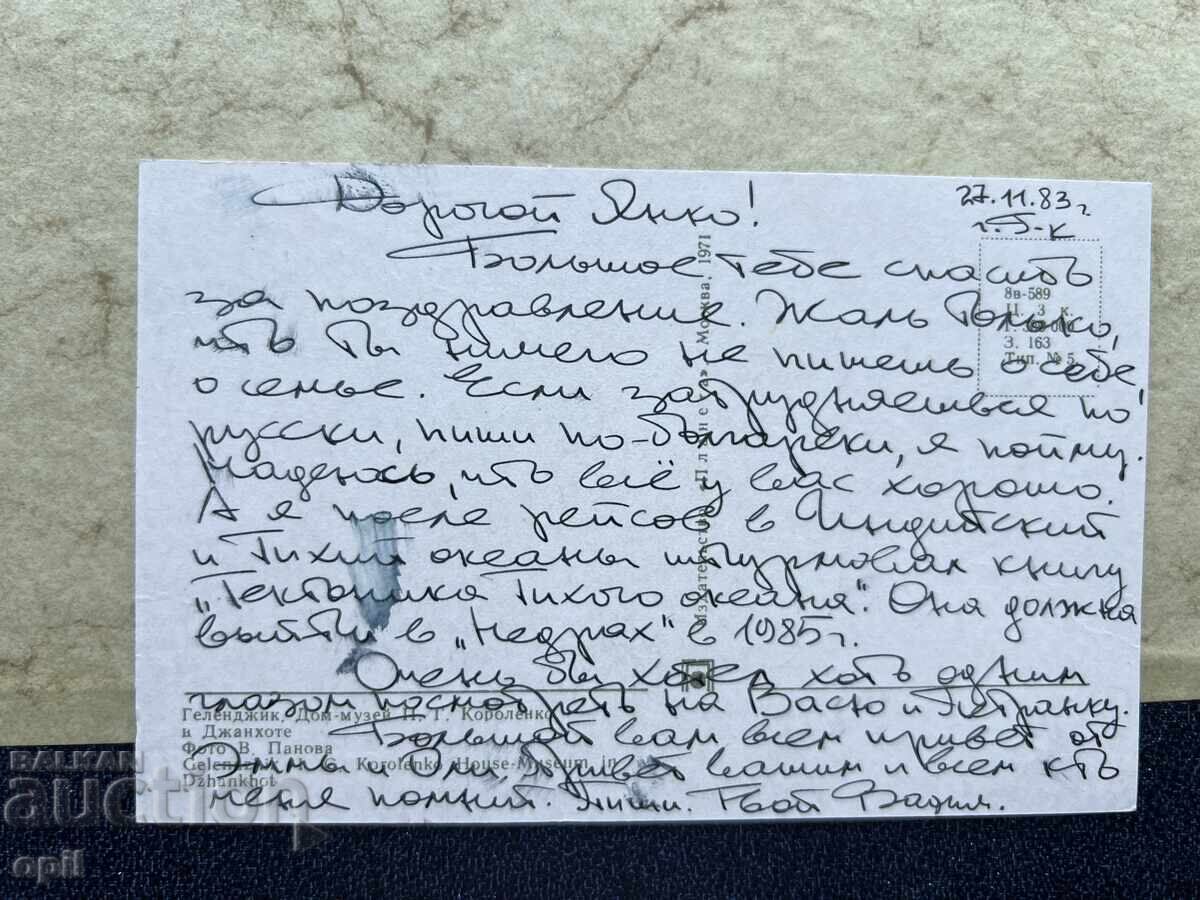 27.11.83 г
г. Г-к
Дорогой Янко!
Большое тебе спасибо
за поздравление. Жаль только,
что ты ничего не пишешь о себе,
о семье. Если затрудняешься по
русски, пиши по-болгарски, я пойму.
Надеюсь, что всё у вас хорошо.
А я после рейсов в Индийский
и Тихий океаны штурмовал книгу
„Тектоника Тихого океана". Она должна
выйти в „Недрах" в 1985г.
Очень бы хотел хоть одним
глазом посмотреть на Васю и Петранку.
Большой вам всем привет от
Эммы и Оли, Привет вашим и всем кто
меня помнит. Пиши. Твой Вадим.
8в-589
Ц. 3 к.
З. 163
Тип. № 5
Издательство «Планета» Москва, 1971
Геленджик, Дом-музей В. Г. Короленко
в Джанхоте
Фото В. Панова
Gelendzhik. V. G. Korolenko House-Museum in
Dzhankhot
BALKAN
auction
opil